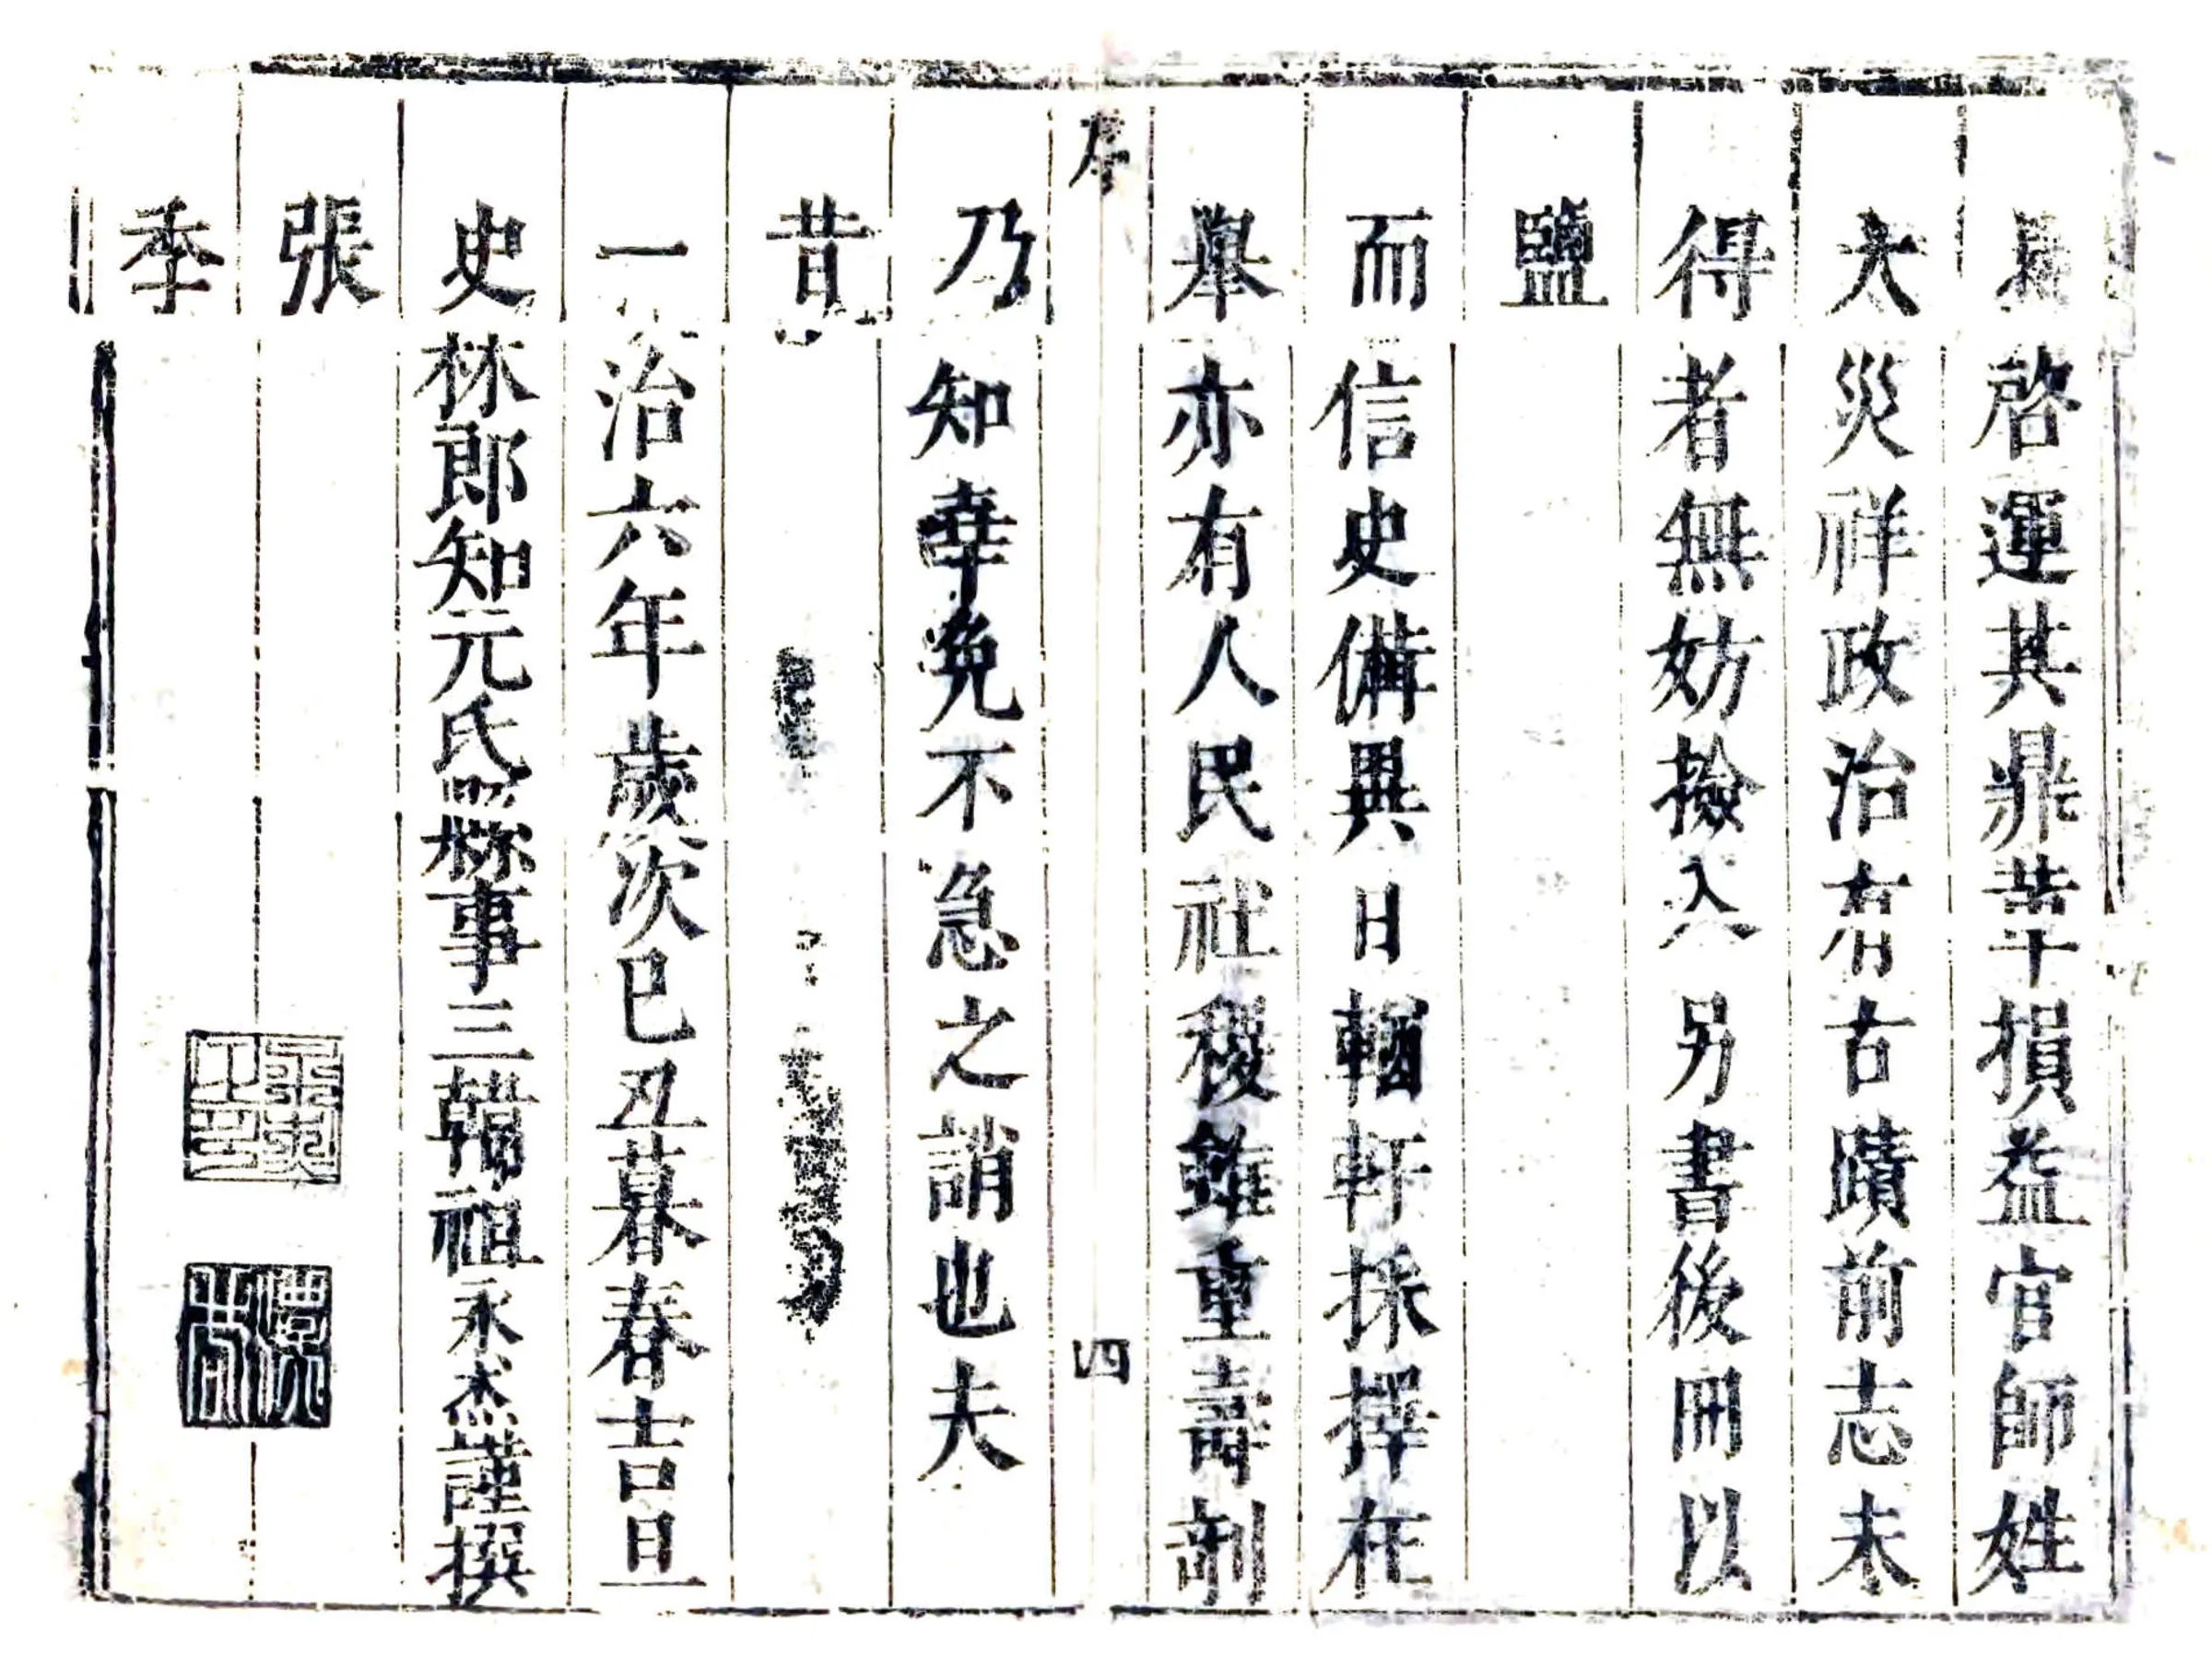 啓運其鼎革損益官師姓
太災祥政治有古蹟前志未
得者無妨撿入另書後冊以
鹽
而信史備異日輶軒採擇在
舉亦有人民社稷雖重壽剞
序 四
乃知幸免不急之誚也夫
昔
一治六年歲次己丑暮春吉旦
史林郎知元氏縣事三韓祖永杰謹撰
張
季